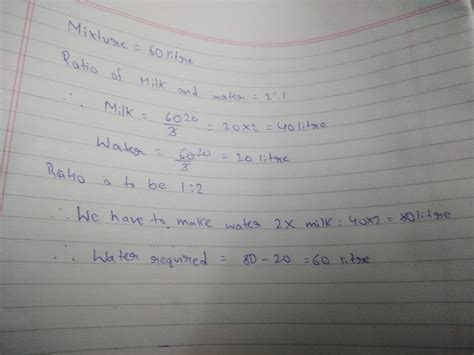 Mixture = 60 litre
Ratio of Milk and water = 2:1
∴ Milk = 60 20/3 = 20×2 = 40 litre
Water = 60 20/3 = 20 litre
Ratio is to be 1:2
∴ We have to make water 2X milk : 40×2 = 80 litre
∴ Water required = 80 - 20 = 60 litre